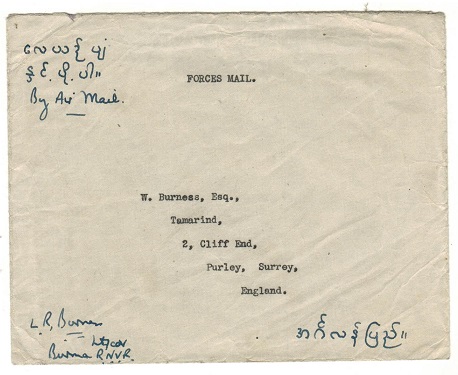 လေယာဉ်ပျံ
နှင့် ပို့ပါ။
By Air Mail.
FORCES MAIL.
W. Burness, Esq.,
Tamarind,
2, Cliff End,
Purley, Surrey,
England.
L.R. Burness
Burma R.N.V.R.
အင်္ဂလန်ပြည်။